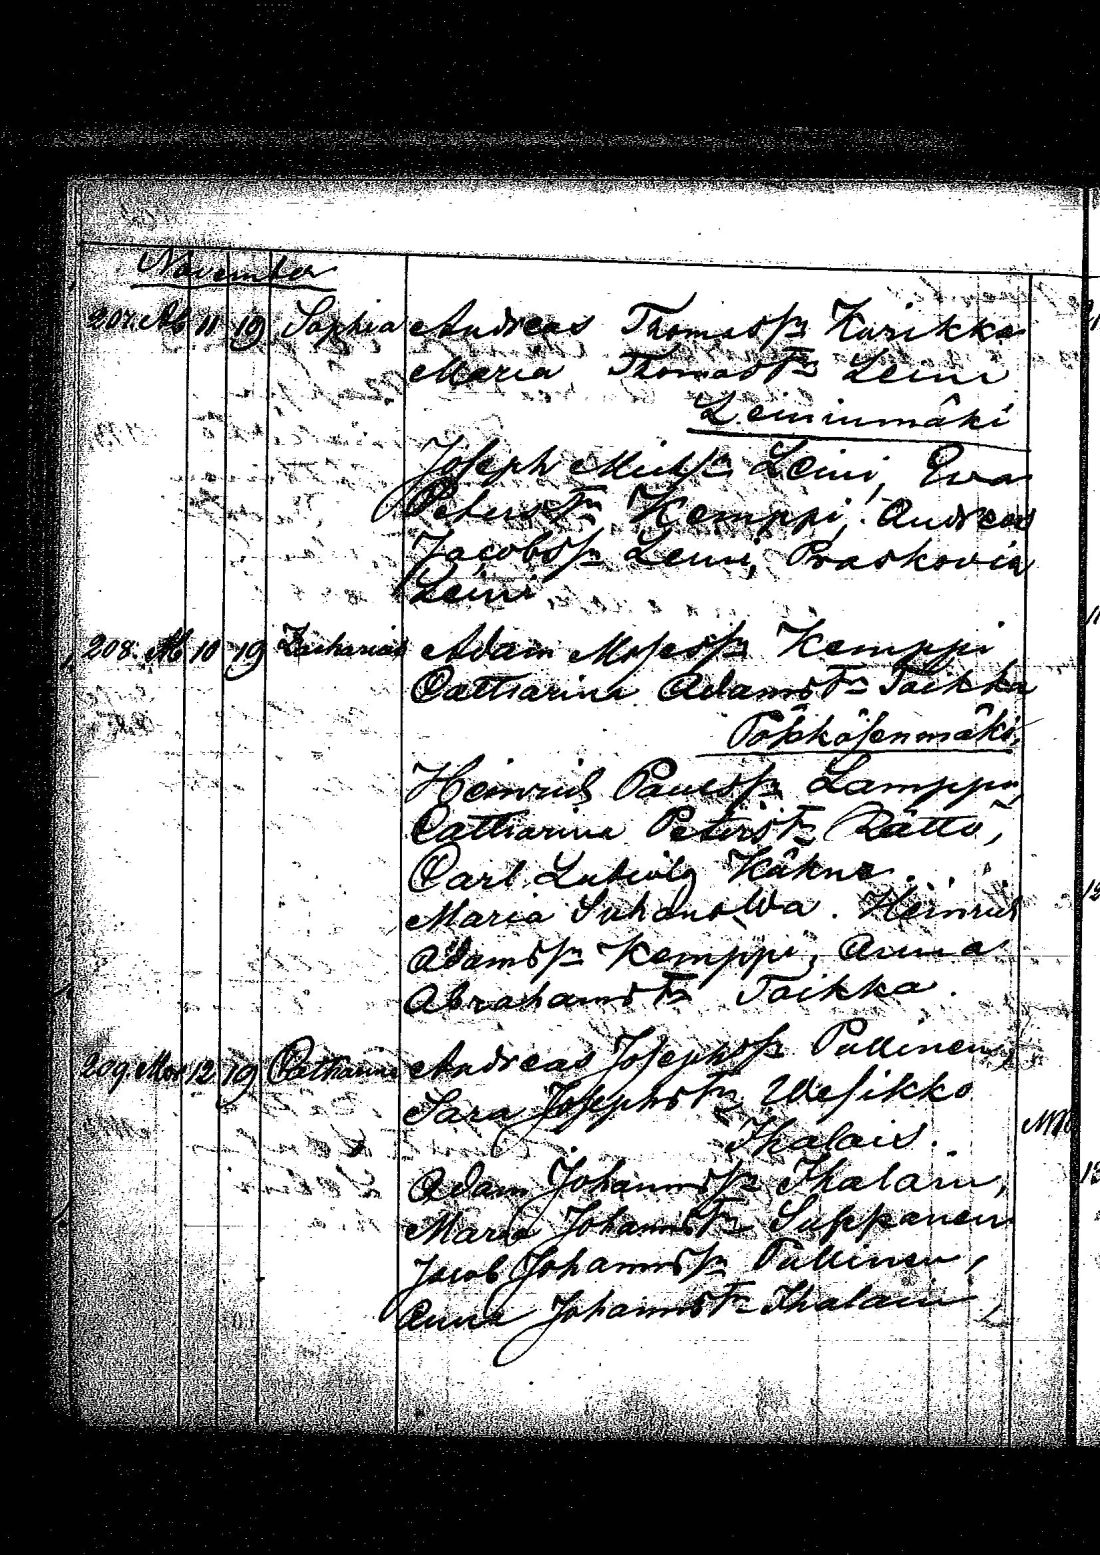 November
207. Ab 11 19 Sophia Andreas Thomass: Karikko
Maria Thomast: Leini
Leininmäki
Joseph Michs: Leini, Eva
Peterst: Kemppi, Andreas
Jacobss: Leini, Praskovia
Leini
208. Ab 10 19 Zacharias Adam Mosess: Kemppi
Catharina Adamst: Toikka
Pöskösenmäki.
Heinrich Paulss: Lamppu,
Catharina Peterst: Rättö,
Carl Ludwig Kähne.
Maria . Heinrich
Adamss: Kemppi, Anna
Abrahamst: Toikka.
209 Mor 12 19 Catharina Andreas Josephss: Pullinen,
Sara Josephst: Wesikko
Ihalais.
Adam Johannss: Ihalain,
Maria Johannst: Suppanen
Jacob Johannss: Pullinen,
Anna Johannst: Ihalain,